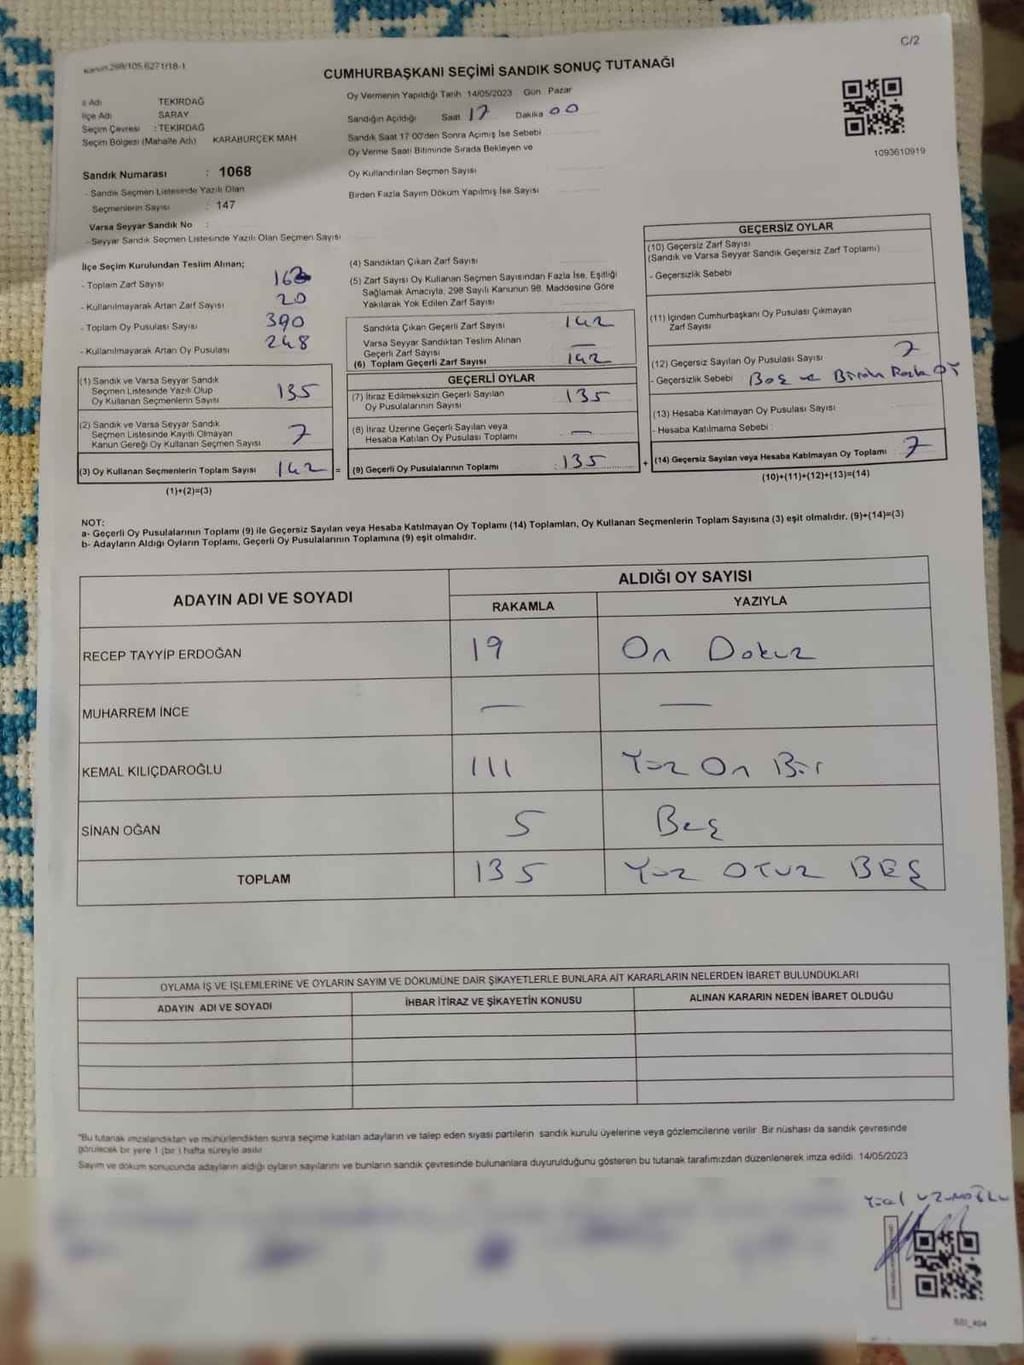 C/2
Kanun.298/105.6271f/18-1
CUMHURBAŞKANI SEÇİMİ SANDIK SONUÇ TUTANAĞI
İl Adı TEKİRDAĞ
İlçe Adı SARAY
Seçim Çevresi : TEKİRDAĞ
Seçim Bölgesi (Mahalle Adı) KARABURÇEK MAH
Sandık Numarası : 1068
- Sandık Seçmen Listesinde Yazılı Olan
Seçmenlerin Sayısı : 147
Varsa Seyyar Sandık No :
- Seyyar Sandık Seçmen Listesinde Yazılı Olan Seçmen Sayısı
Oy Vermenin Yapıldığı Tarih 14/05/2023 Gün Pazar
Sandığın Açıldığı Saat 17 Dakika 00
Sandık Saat 17 00'den Sonra Açımış İse Sebebi
Oy Verme Saati Bitiminde Sırada Bekleyen ve
Oy Kullandırılan Seçmen Sayısı
Birden Fazla Sayım Döküm Yapılmış İse Sayısı
1093610919
İlçe Seçim Kurulundan Teslim Alınan;
- Toplam Zarf Sayısı
- Kullanılmayarak Artan Zarf Sayısı 20
- Toplam Oy Pusulası Sayısı 390
- Kullanılmayarak Artan Oy Pusulası 248
(1) Sandık ve Varsa Seyyar Sandık
Seçmen Listesinde Yazılı Olup
Oy Kullanan Seçmenlerin Sayısı 135
(2) Sandık ve Varsa Seyyar Sandık
Seçmen Listesinde Kayıtlı Olmayan
Kanun Gereği Oy Kullanan Seçmen Sayısı 7
(3) Oy Kullanan Seçmenlerin Toplam Sayısı 142 =
(1)+(2)=(3)
(4) Sandıktan Çıkan Zarf Sayısı
(5) Zarf Sayısı Oy Kullanan Seçmen Sayısından Fazla İse, Eşitliği
Sağlamak Amacıyla, 298 Sayılı Kanunun 98. Maddesine Göre
Yakılarak Yok Edilen Zarf Sayısı
Sandıkta Çıkan Geçerli Zarf Sayısı 142
Varsa Seyyar Sandıktan Teslim Alınan
Geçerli Zarf Sayısı —
(6) Toplam Geçerli Zarf Sayısı 142
GEÇERLİ OYLAR
(7) İtiraz Edilmeksizin Geçerli Sayılan
Oy Pusulalarının Sayısı 135
(8) İtiraz Üzerine Geçerli Sayılan veya
Hesaba Katılan Oy Pusulası Toplamı —
(9) Geçerli Oy Pusulalarının Toplamı : 135 +
GEÇERSİZ OYLAR
(10) Geçersiz Zarf Sayısı
(Sandık ve Varsa Seyyar Sandık Geçersiz Zarf Toplamı)
- Geçersizlik Sebebi
(11) İçinden Cumhurbaşkanı Oy Pusulası Çıkmayan
Zarf Sayısı
(12) Geçersiz Sayılan Oy Pusulası Sayısı 7
- Geçersizlik Sebebi Boş ve Birden Fazla OY
(13) Hesaba Katılmayan Oy Pusulası Sayısı
- Hesaba Katılmama Sebebi
(14) Geçersiz Sayılan veya Hesaba Katılmayan Oy Toplamı 7
(10)+(11)+(12)+(13)=(14)
NOT:
a- Geçerli Oy Pusulalarının Toplamı (9) ile Geçersiz Sayılan veya Hesaba Katılmayan Oy Toplamı (14) Toplamları, Oy Kullanan Seçmenlerin Toplam Sayısına (3) eşit olmalıdır. (9)+(14)=(3)
b- Adayların Aldığı Oyların Toplamı, Geçerli Oy Pusulalarının Toplamına (9) eşit olmalıdır.
ADAYIN ADI VE SOYADI ALDIĞI OY SAYISI
RAKAMLA YAZIYLA
RECEP TAYYİP ERDOĞAN 19 On Dokuz
MUHARREM İNCE — —
KEMAL KILIÇDAROĞLU 111 Yüz On Bir
SİNAN OĞAN 5 Beş
TOPLAM 135 Yüz OTUZ BEŞ
OYLAMA İŞ VE İŞLEMLERİNE VE OYLARIN SAYIM VE DÖKÜMÜNE DAİR ŞİKAYETLERLE BUNLARA AİT KARARLARIN NELERDEN İBARET BULUNDUKLARI
ADAYIN ADI VE SOYADI İHBAR İTİRAZ VE ŞİKAYETİN KONUSU ALINAN KARARIN NEDEN İBARET OLDUĞU
"Bu tutanak imzalandıktan ve mühürlendikten sonra seçime katılan adayların ve talep eden siyasi partilerin sandık kurulu üyelerine veya gözlemcilerine verilir. Bir nüshası da sandık çevresinde
görülecek bir yere 1 (bir ) hafta süreyle asılır
Sayım ve döküm sonucunda adayların aldığı oyların sayılarını ve bunların sandık çevresinde bulunanlara duyurulduğunu gösteren bu tutanak tarafımızdan düzenlenerek imza edildi. 14/05/2023
UZUNOĞLU